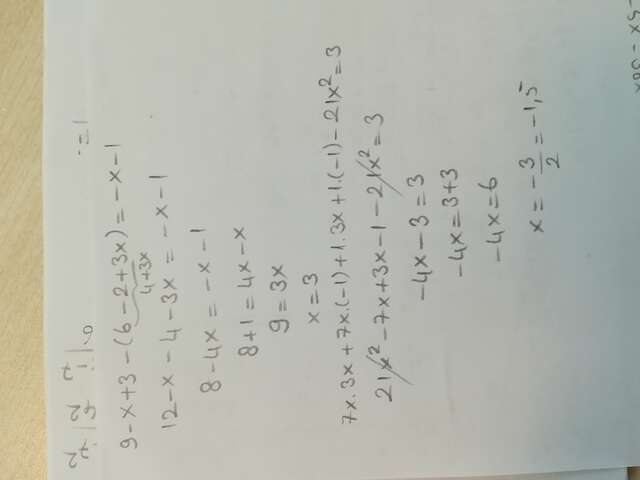 9-x+3-(6-2+3x)=-x-1
4+3x
12-x-4-3x=-x-1
8-4x=-x-1
8+1=4x-x
9=3x
x=3
7x.3x+7x.(-1)+1.3x+1.(-1)-21x²=3
21x²-7x+3x-1-21x²=3
-4x-3=3
-4x=3+3
-4x=6
x=-3/2=-1,5